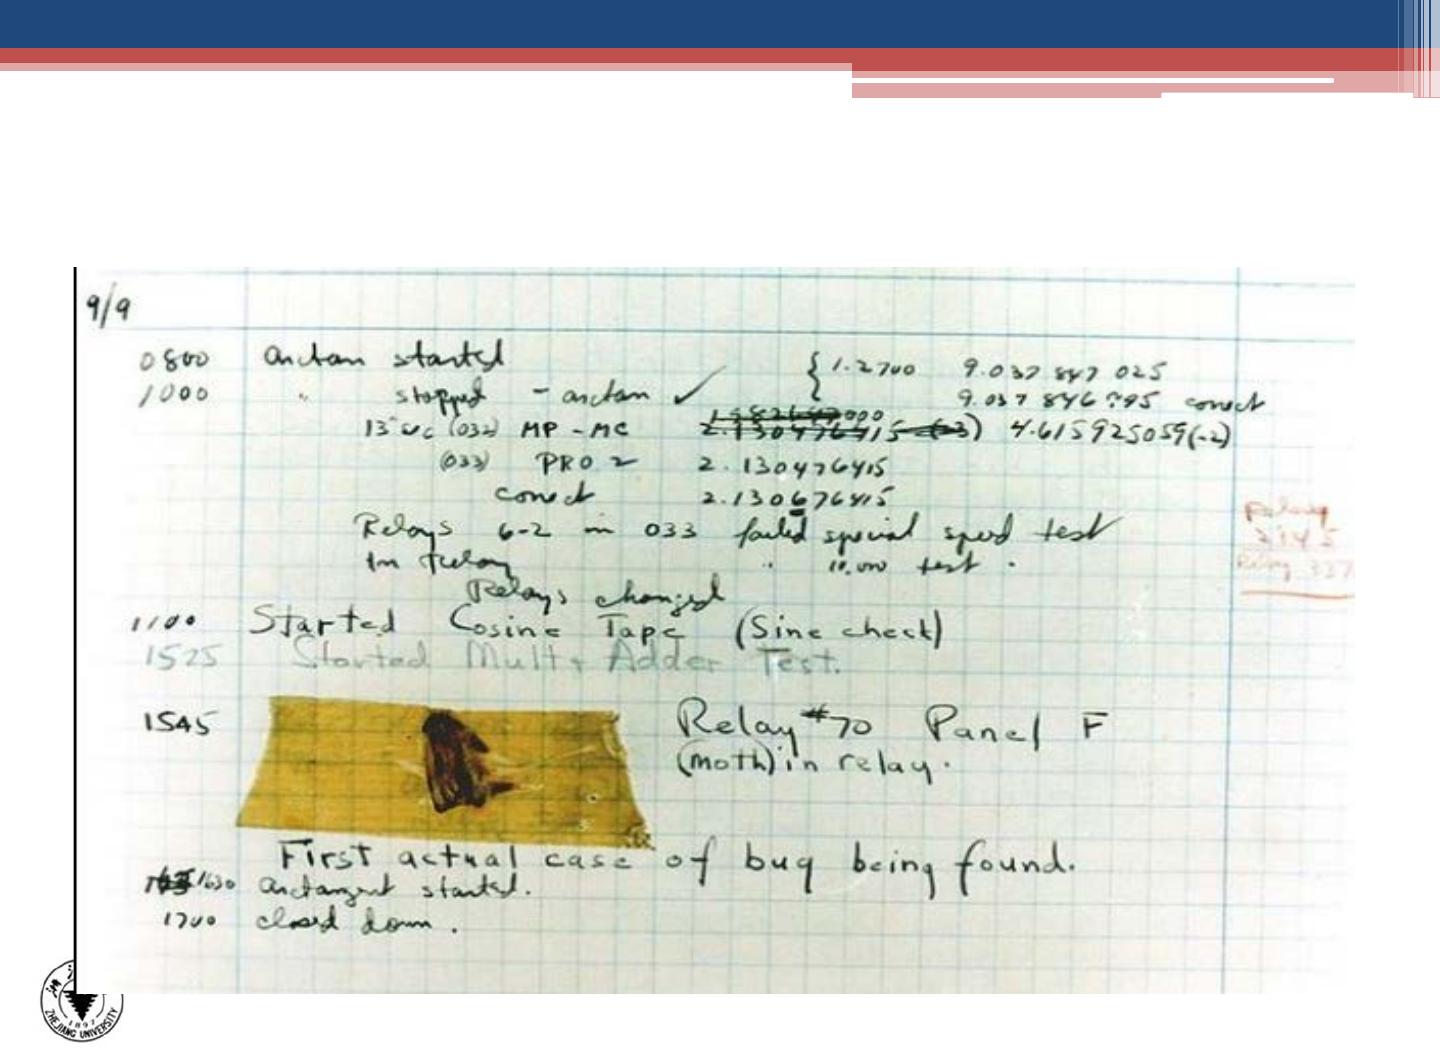 9/9
0800 arctan started { 1.2700 9.037 847 025
1000 " stopped - arctan ✓ 9.037 846 995 correct
13"uc (032) MP - MC 2.130476415 (-3) 4.615925059(-2)
(033) PRO 2 2.130476415
correct 2.130676415
Relays 6-2 in 033 failed special speed test
in relay " 10,000 test .
Relays changed
1100 Started Cosine Tape (Sine check)
1525 Started Mult + Adder Test.
1545 Relay #70 Panel F
(moth) in relay.
First actual case of bug being found.
1630 arctangent started.
1700 closed down .
Relay
2145
Relay 337
ZHEJIANG UNIVERSITY
1897